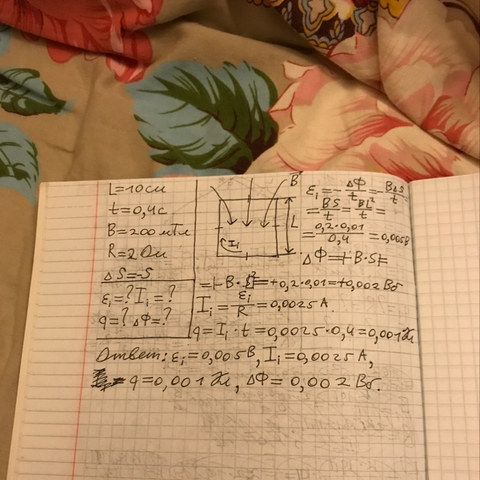 L=10см
t=0,4с
B=200мТл
R=2Ом
ΔS=-S
εᵢ=? Iᵢ=?
q=? ΔΦ=?
B
L
Iᵢ
εᵢ=-ΔΦ/t=BΔS/t=
=BS/t=BL²/t=
=0,2·0,01/0,4=0,005В
ΔΦ=+B·S=
=+B·S=+0,2·0,01=+0,002Вб
Iᵢ=εᵢ/R=0,0025А.
q=Iᵢ·t=0,0025·0,4=0,001Кл
Ответ: εᵢ=0,005В, Iᵢ=0,0025А,
q=0,001Кл, ΔΦ=0,002Вб.